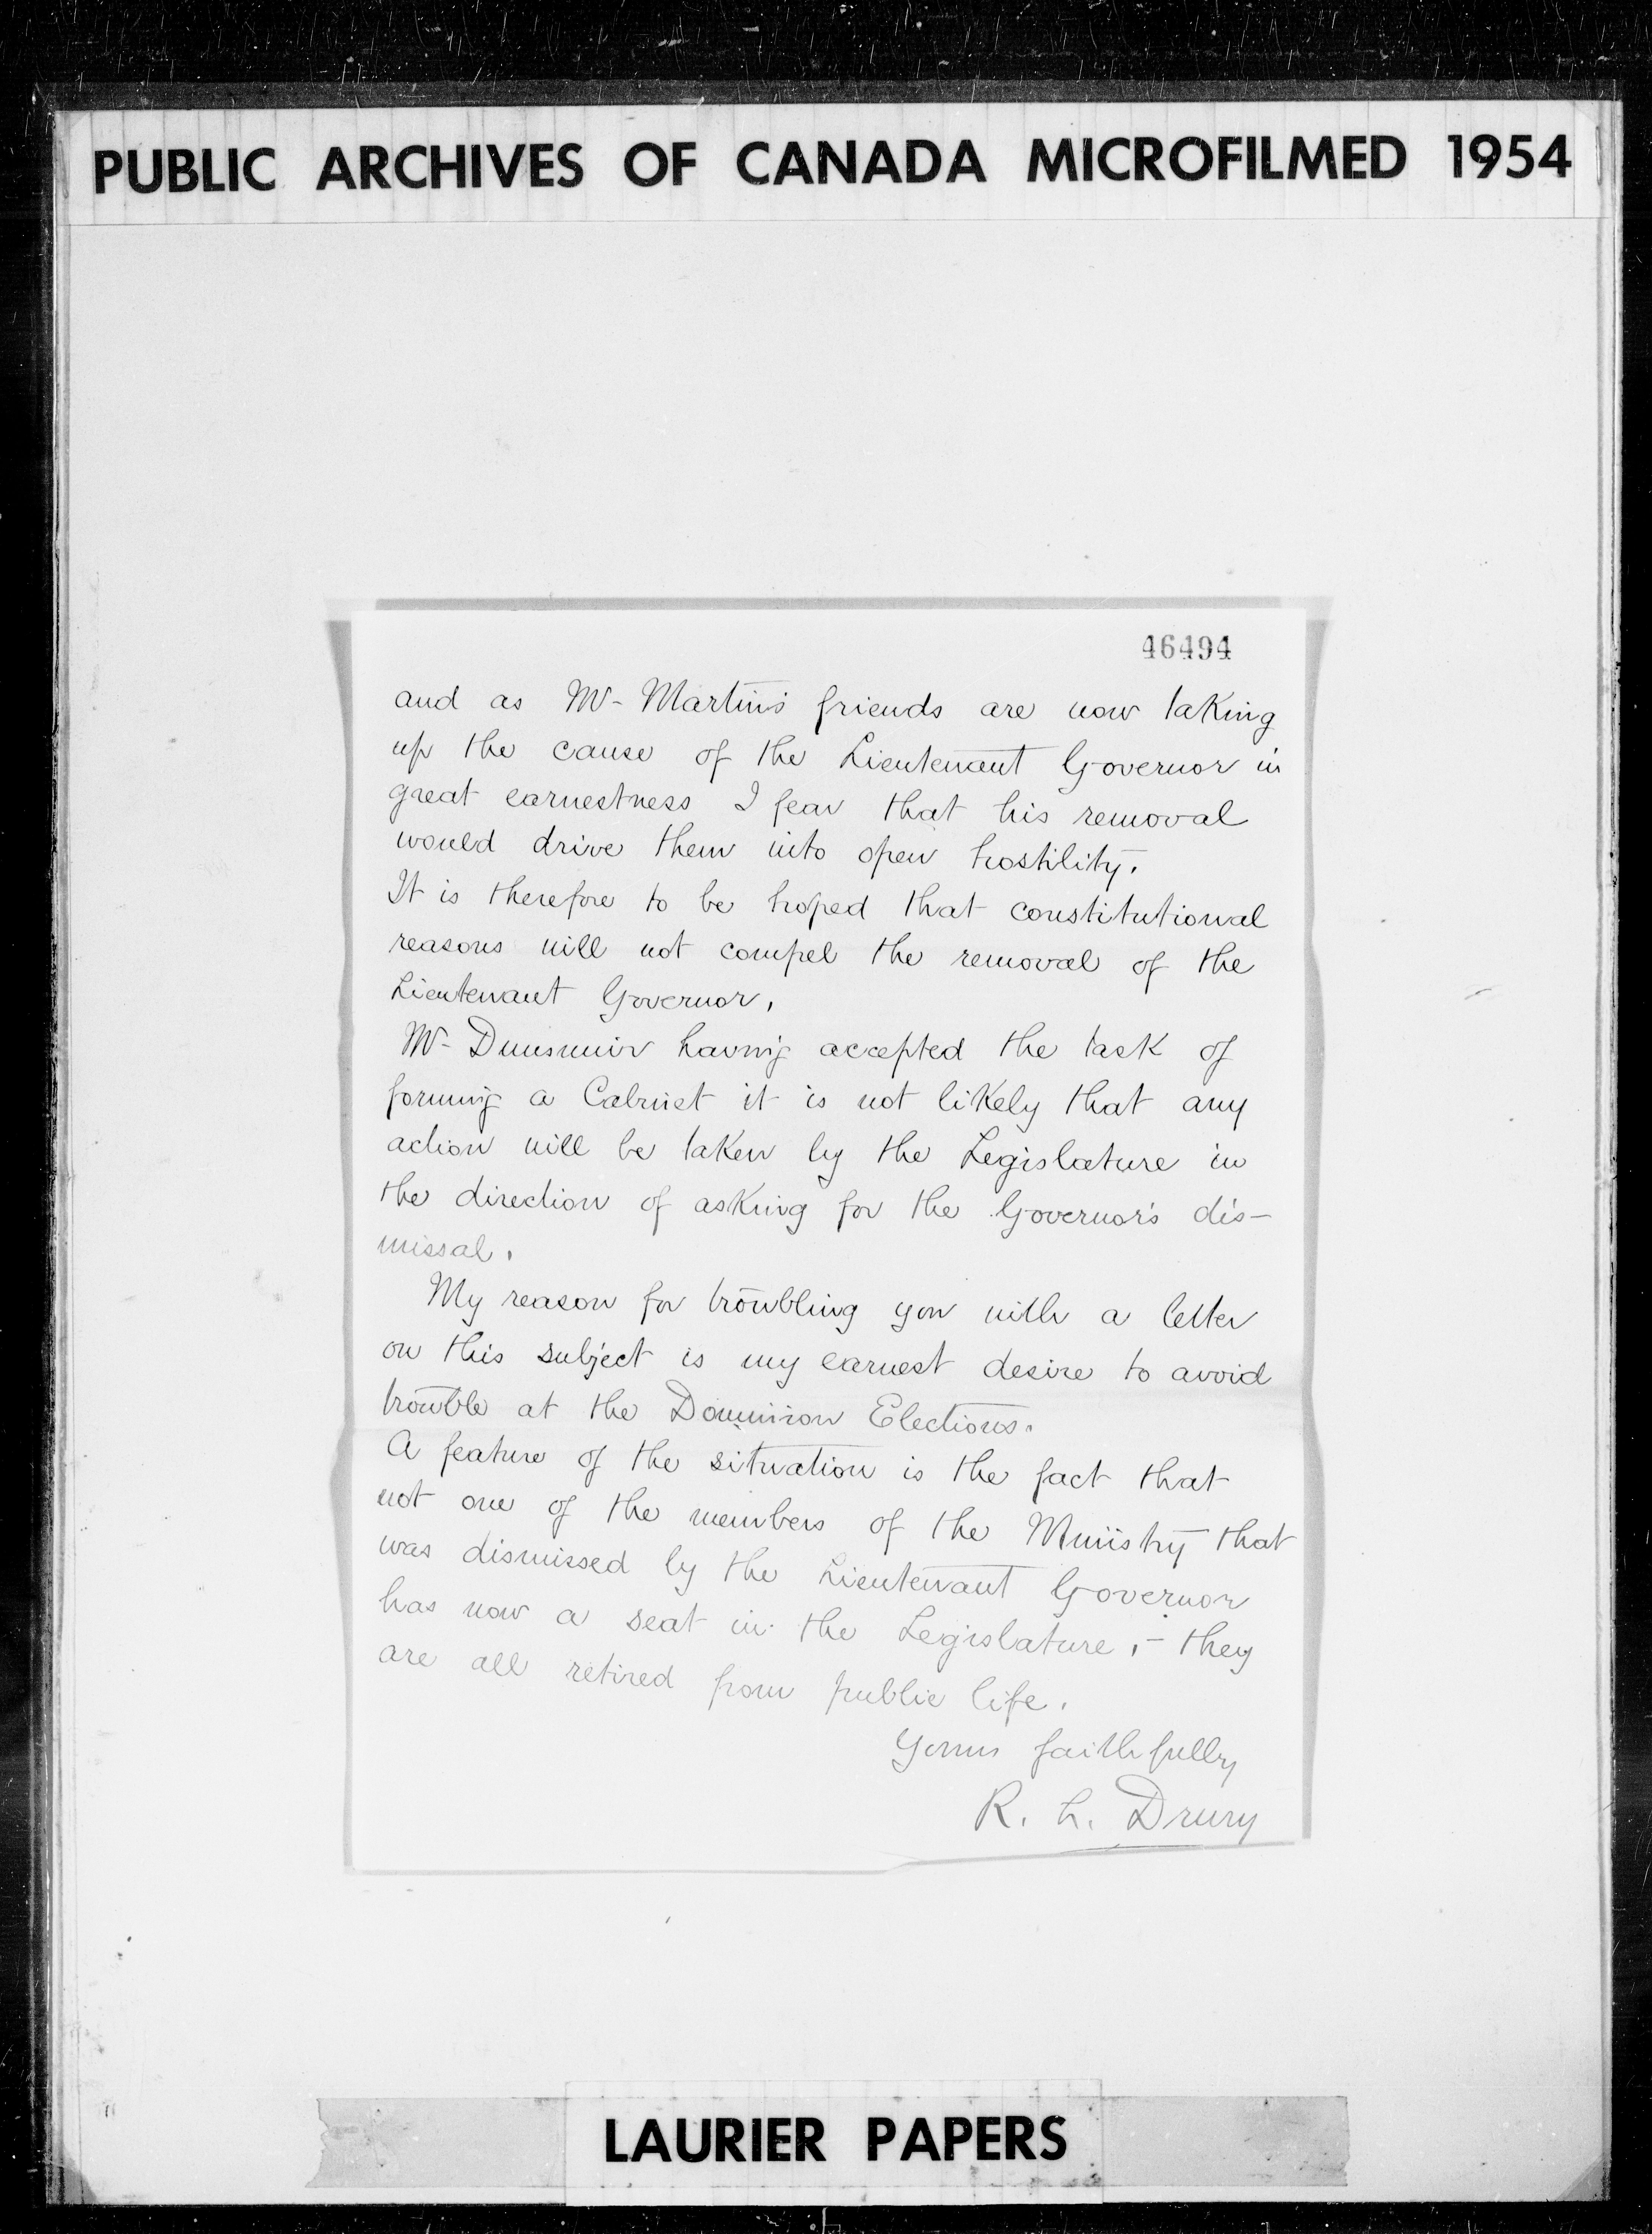 PUBLIC ARCHIVES OF CANADA MICROFILMED 1954
46494
and as Mr- Martin's friends are now taking
up the cause of the Lieutenant Governor in
great earnestness I fear that his removal
would drive them into open hostility.
It is therefore to be hoped that constitutional
reasons will not compel the removal of the
Lieutenant Governor.
Mr- Dunsmuir having accepted the task of
forming a Cabinet it is not likely that any
action will be taken by the Legislature in
the direction of asking for the Governor's dis-
missal.
My reason for troubling you with a letter
on this subject is my earnest desire to avoid
trouble at the Dominion Elections.
A feature of the situation is the fact that
not one of the members of the Ministry that
was dismissed by the Lieutenant Governor
has now a seat in the Legislature,- they
are all retired from public life.
Yours faithfully
R. L. Drury
LAURIER PAPERS